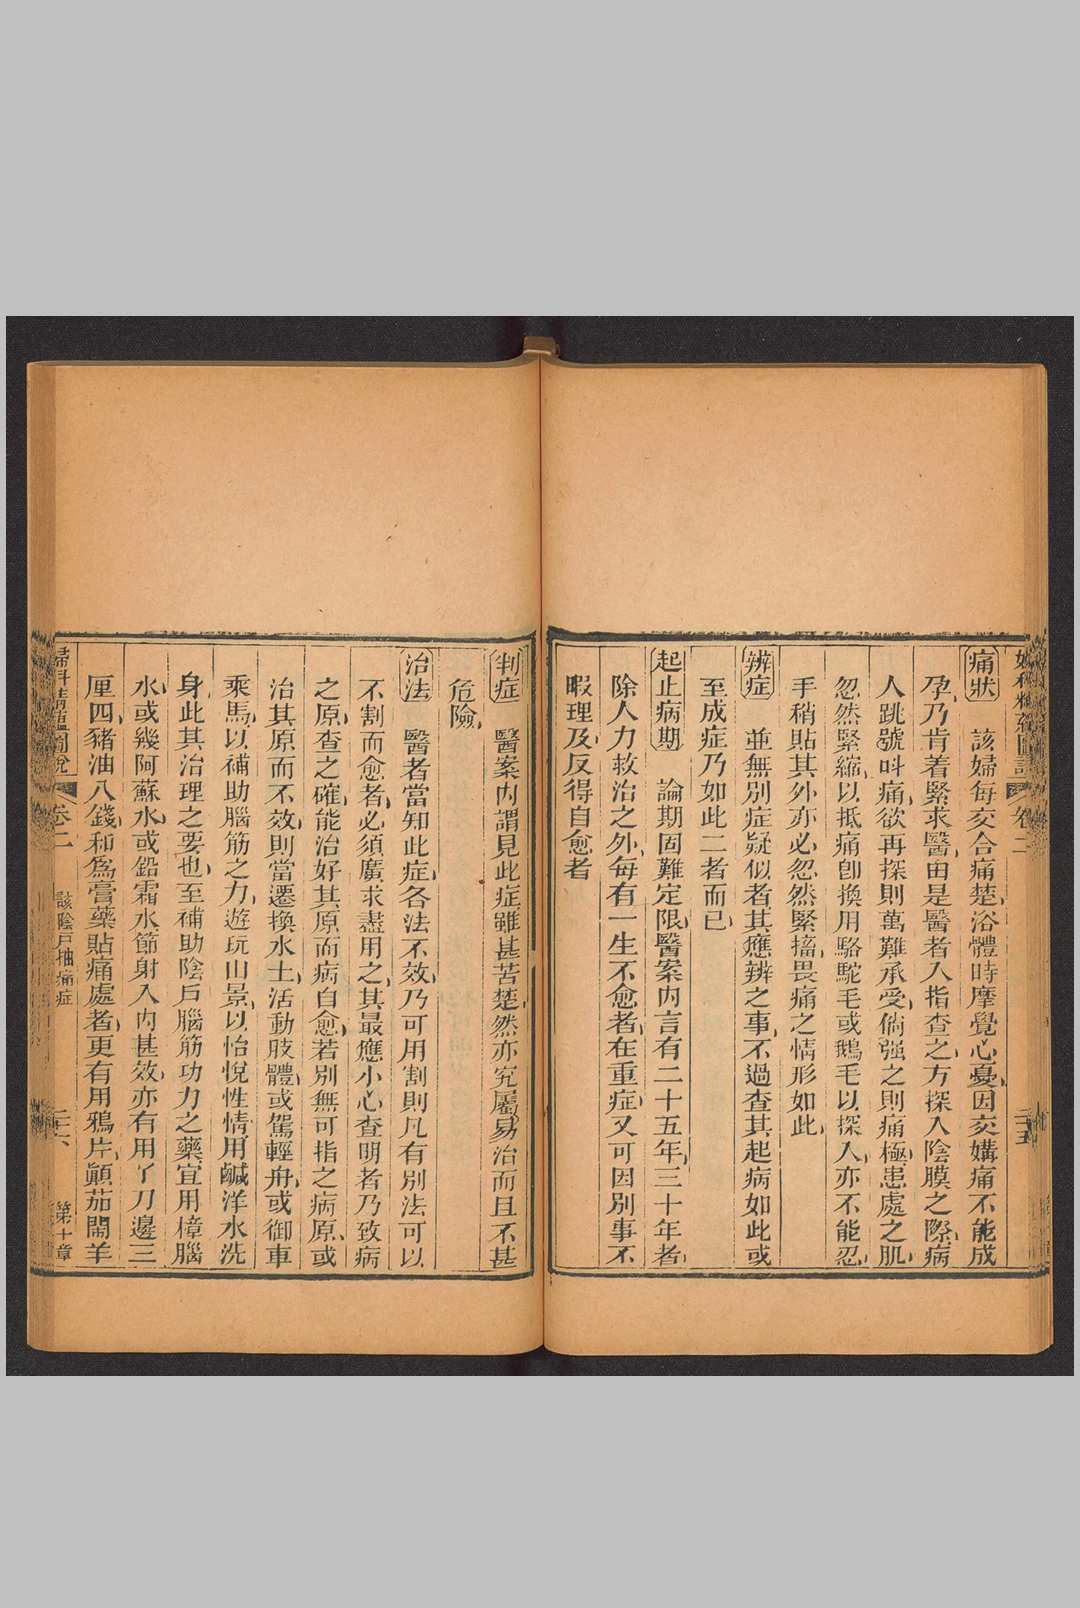 婦科精蘊圖說 卷二 二十五
痛狀 該婦每交合痛楚、浴體時摩覺心憂、因交媾痛不能成
孕、乃肯着緊求醫、由是醫者入指查之、方探入陰膜之際、病
人跳號叫痛、欲再探則萬難承受、倘强之則痛極、患處之肌
忽然緊縮、以抵痛、卽換用駱駝毛或鵝毛以探入、亦不能忍
手稍貼其外、亦必忽然緊搐、畏痛之情形如此、
辨症 並無別症疑似者、其應辨之事、不過查其起病如此、或
至成症乃如此、二者而已、
起止病期 論期固難定限、醫案內言有二十五年三十年者、
除人力救治之外、每有一生不愈者、在重症、又可因別事不
暇理及、反得自愈者
判症 醫案內謂見此症雖甚苦楚、然亦究屬易治、而且不甚
危險、
治法 醫者當知此症、各法不效、乃可用割、則凡有別法可以
不割而愈者、必須廣求盡用之、其最應小心查明者、乃致病
之原、查之確、能治好其原、而病自愈、若別無可指之病原、或
治其原而不效、則當遷換水土、活動肢體、或駕輕舟、或御車
乘馬、以補助腦筋之力、遊玩山景、以怡悅性情、用鹹洋水洗
身、此其治理之要也、至補助陰戶腦筋功力之藥、宜用樟腦
水、或幾阿蘇水、或鉛霜水、節射入內甚效、亦有用了刀邊三
厘四、豬油八錢、和為膏藥貼痛處者、更有用鴉片、顚茄、鬧羊
婦科精蘊圖說 卷二 該陰戶抽痛症 二十六 第十章